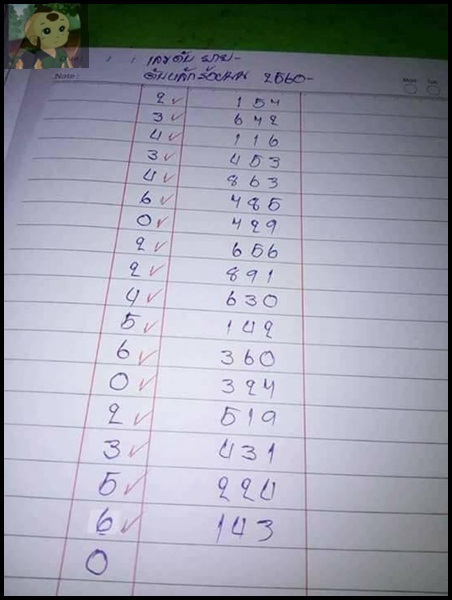 เลขดับ บน-
ดับหลักร้อยบน 2560-
Note: Mon Tue
2 ✓ 154
3 ✓ 642
4 ✓ 116
3 ✓ 453
4 ✓ 863
6 ✓ 485
0 ✓ 429
2 ✓ 656
2 ✓ 891
4 ✓ 630
5 ✓ 142
6 ✓ 360
0 ✓ 324
2 ✓ 519
3 ✓ 431
5 ✓ 224
6 ✓ 143
0